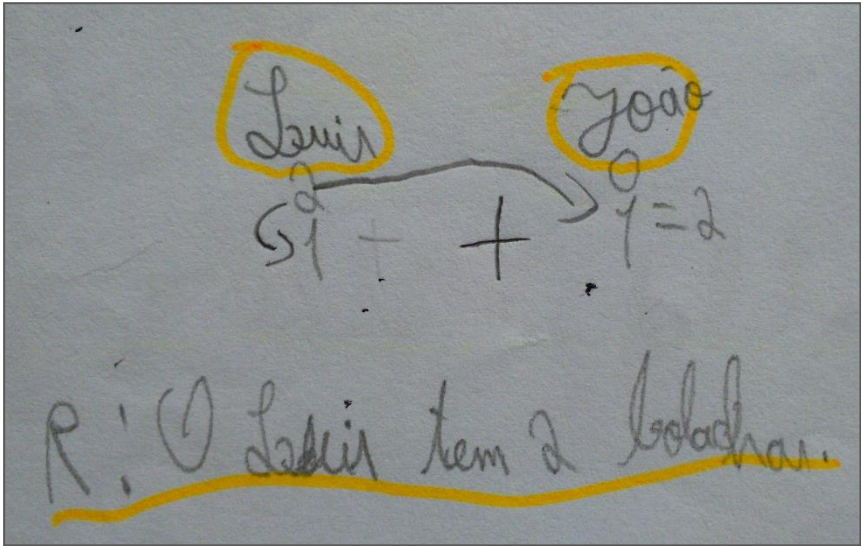 Luis João
2 0
1 + 1 = 2
R: O Luis tem 2 bolachas.